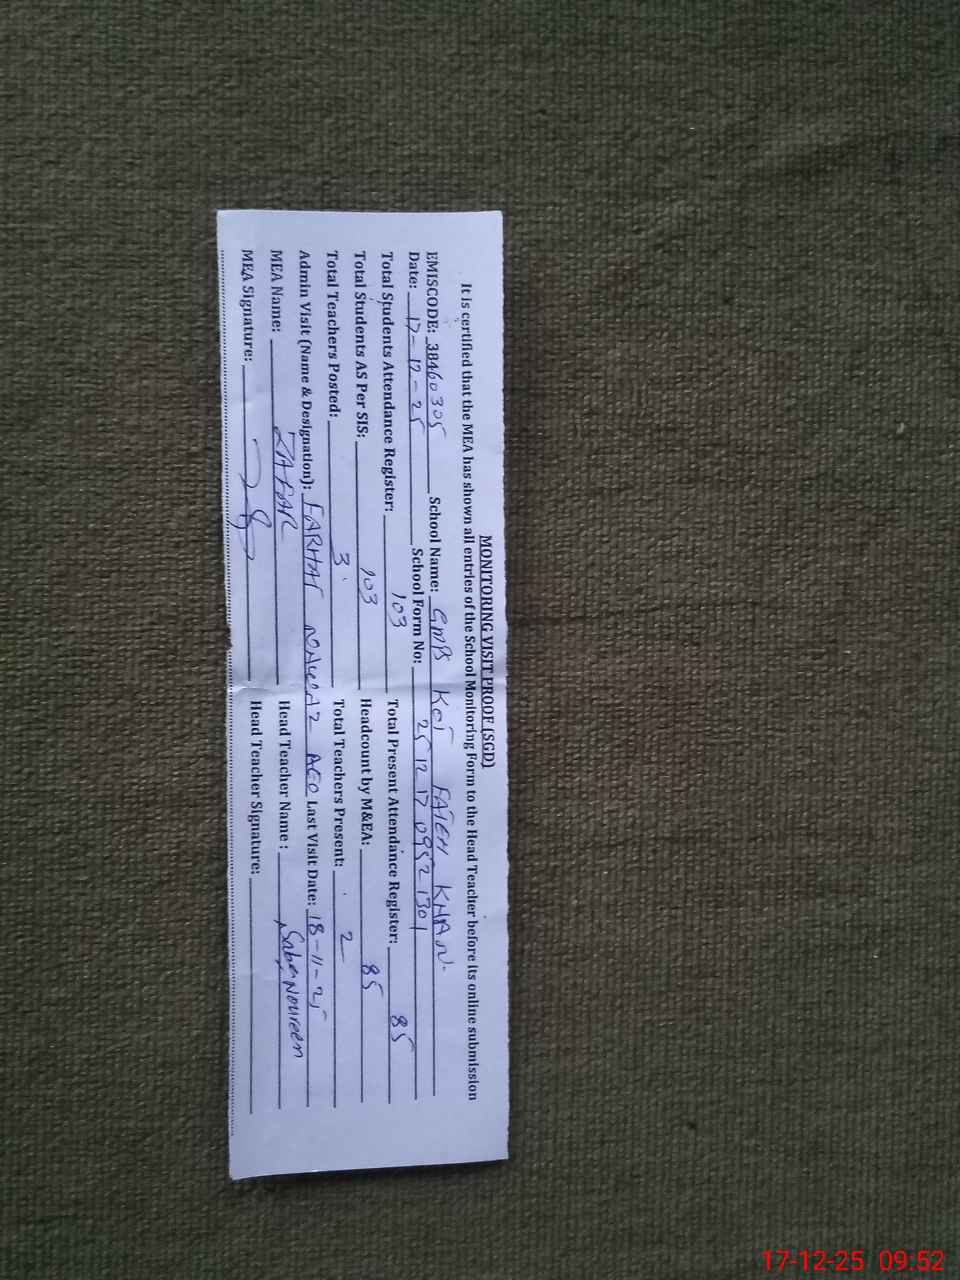 MONITORING VISIT PROOF [SGD]
It is certified that the MEA has shown all entries of the School Monitoring Form to the Head Teacher before its online submission
EMISCODE: 38460305 School Name: GMPS KOT FATEH KHAN
Date: 17-12-25 School Form No: 25 12 17 0952 1301
Total Students Attendance Register: 103 Total Present Attendance Register: 85
Total Students AS Per SIS: 103 Headcount by M&EA: 85
Total Teachers Posted: 3 Total Teachers Present: 2
Admin Visit (Name & Designation): FARHAT NAWAZ AEO Last Visit Date: 18-11-25
MEA Name: ZAFAR Head Teacher Name : Noureen
MEA Signature: Head Teacher Signature:
17-12-25 09:52